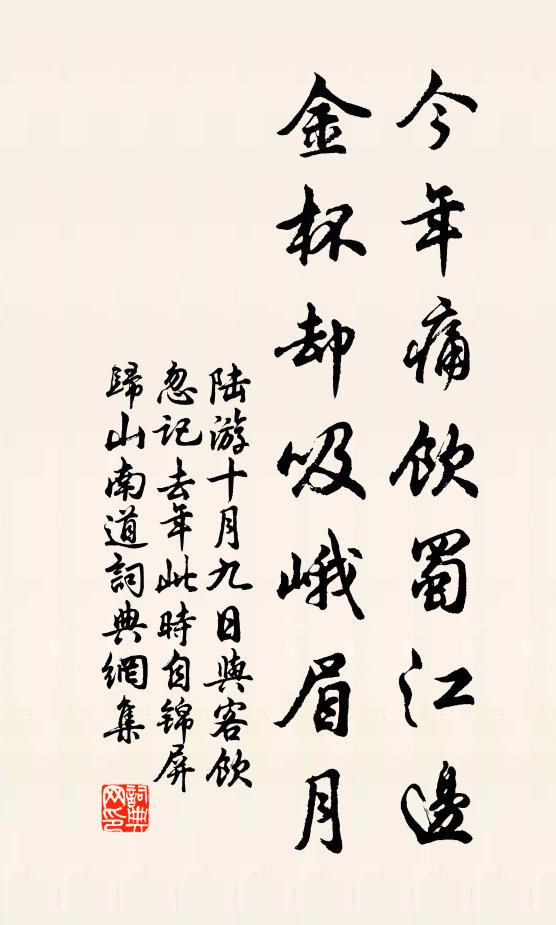 今年痛飲蜀江邊
金杯却吸峨眉月
陆游十月九日與客飲
忽记去年此時自锦屏
歸山南道詞典網集
詞典网印